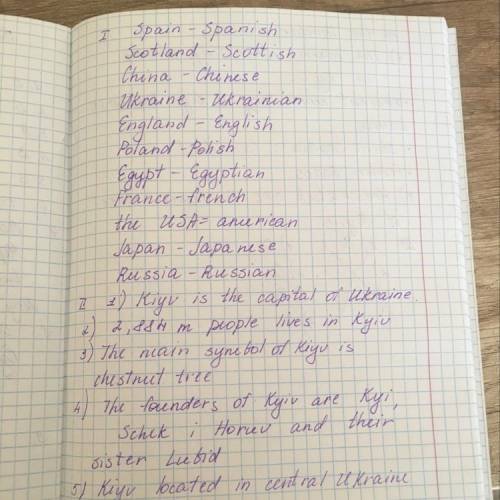 I Spain - Spanish
Scotland - Scottish
China - Chinese
Ukraine - Ukrainian
England - English
Poland - Polish
Egypt - Egyptian
France - french
the USA = american
Japan - Japanese
Russia - Russian
II 1) Kiyv is the capital of Ukraine.
2) 2,884 m people lives in Kyiv
3) The main symbol of Kiyv is
chestnut tree
4) The founders of Kyiv are Kyi,
Schek i Horuv and their
sister Lubid
5) Kiyv located in central Ukraine